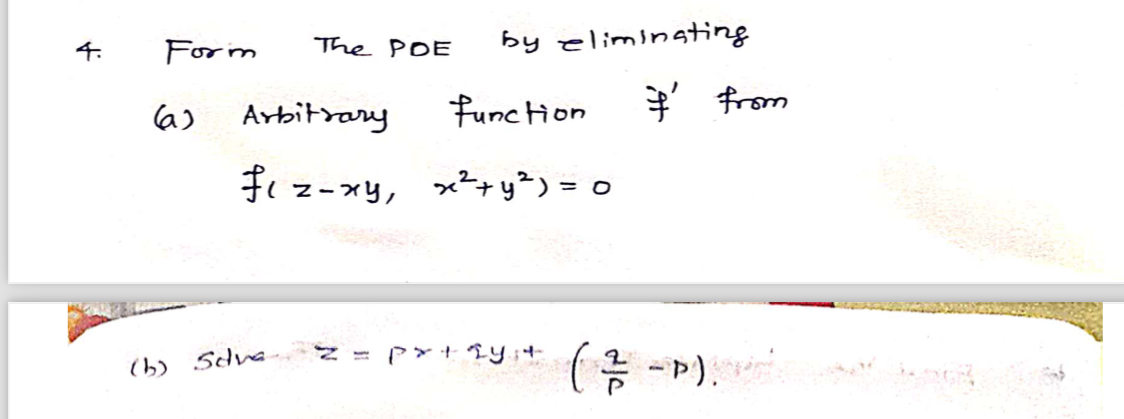 4. Form The PDE by eliminating
(a) Arbitrary function 'f' from
f(z-xy, x²+y²) = 0
(b) Solve z = px+qy+(q/p - p).